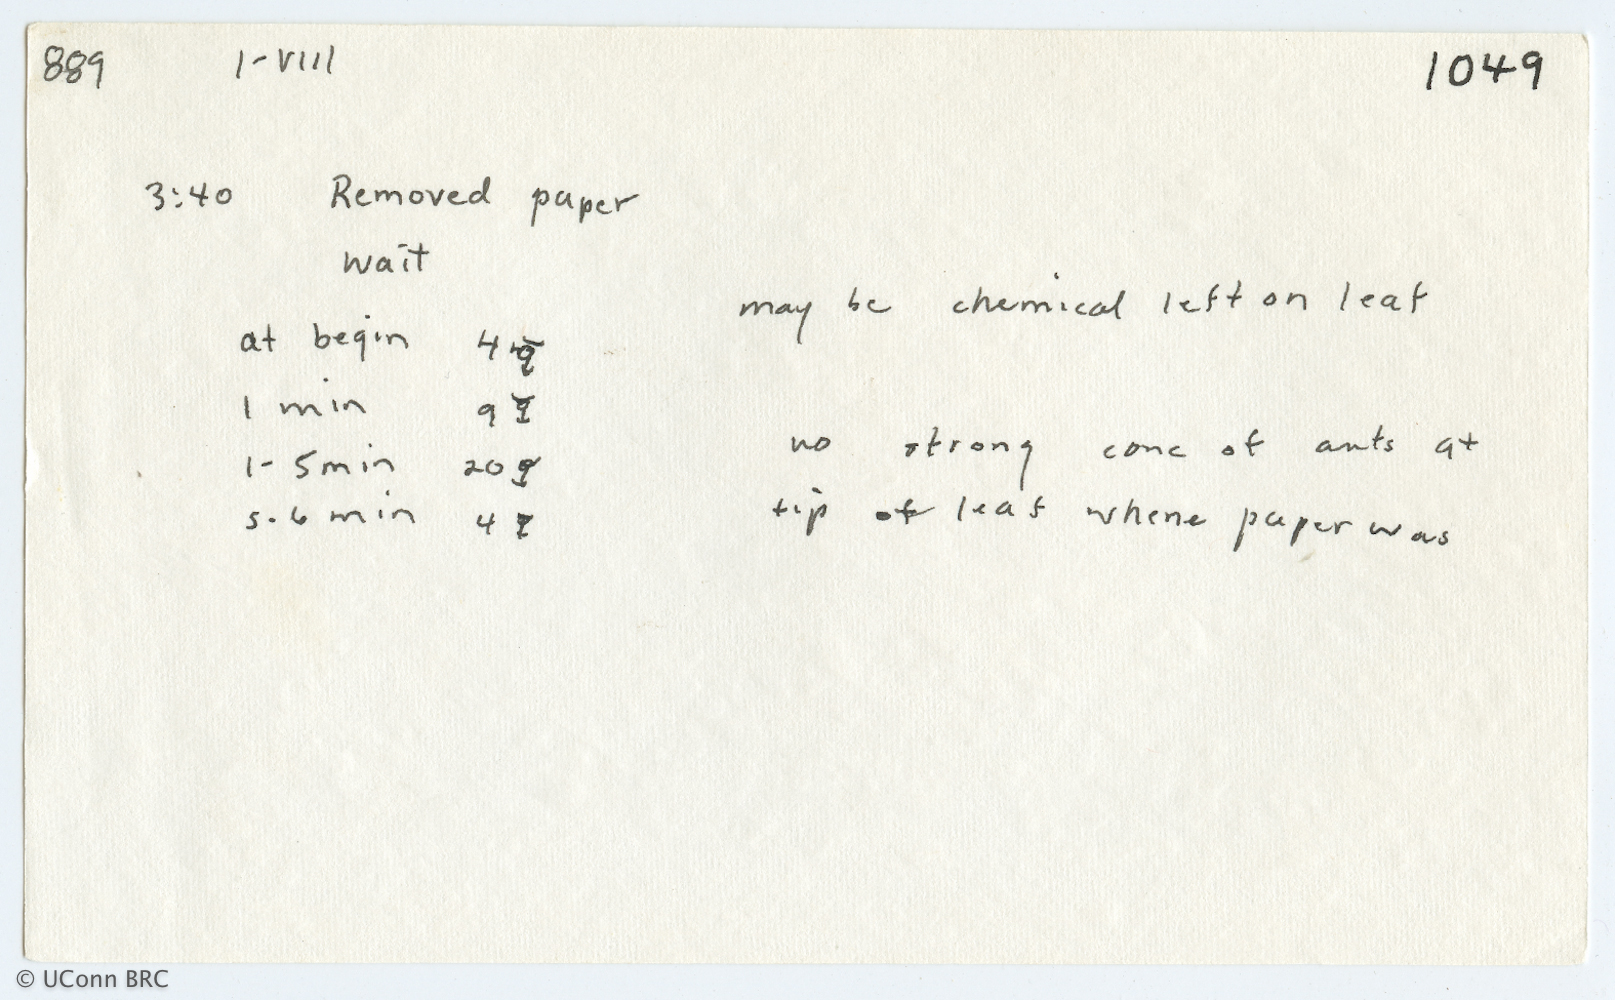 889 1-VIII 1049
3:40 Removed paper
wait
may be chemical left on leaf
at begin 4 ☿
1 min 9 ☿
1-5 min 20 ☿
5-6 min 4 ☿
no strong conc of ants at
tip of leaf where paper was
© UConn BRC